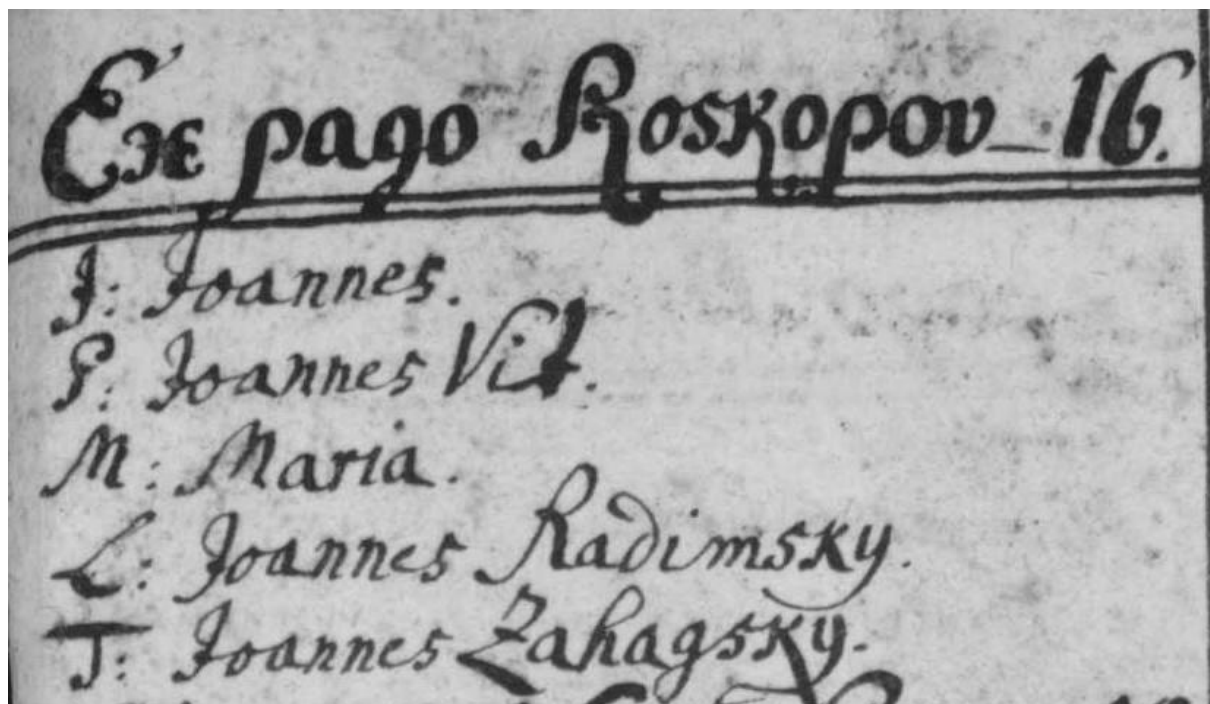 Exe pago Roskopov_16.
I: Joannes.
P: Joannes Vit.
M: Maria.
L: Joannes Radimsky.
T: Joannes Zahagsky.